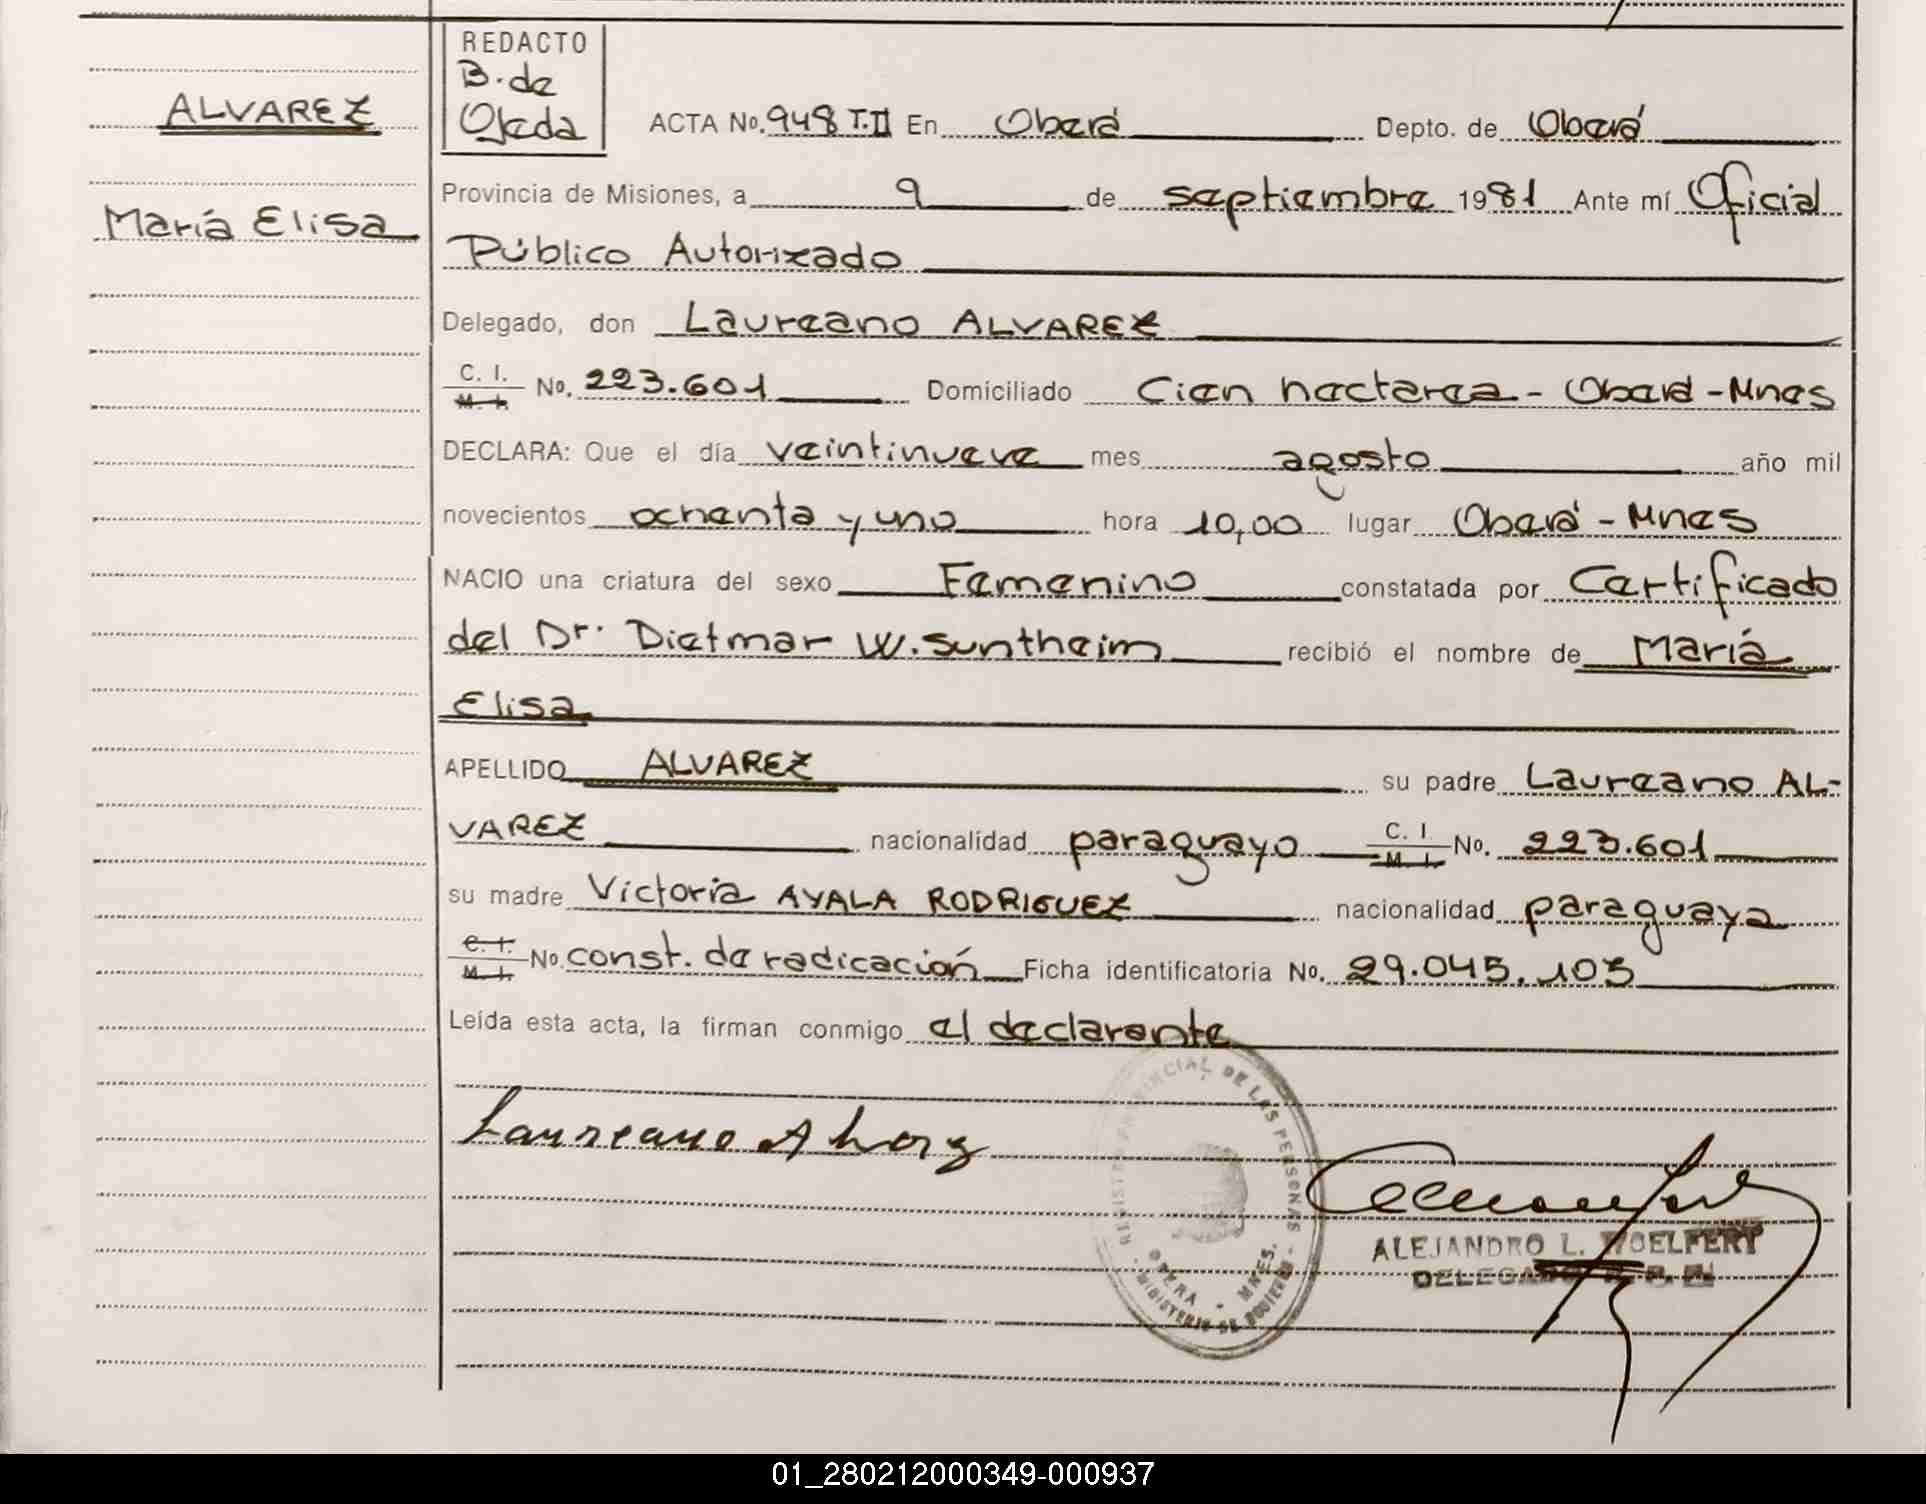 ALVAREZ
María Elisa
REDACTO
B. de
Ojeda
ACTA No. 948 T.II En Oberá Depto. de Oberá
Provincia de Misiones, a 9 de septiembre 1981 Ante mí Oficial
Público Autorizado
Delegado, don Laureano ALVAREZ
C. I. M. I. No. 223.601 Domiciliado Cien hectarea - Oberá - Mnes
DECLARA: Que el día veintinueve mes agosto año mil
novecientos ochenta y uno hora 10,00 lugar Oberá - Mnes
NACIO una criatura del sexo Femenino constatada por Certificado
del Dr. Dietmar W. Suntheim recibió el nombre de María
Elisa
APELLIDO ALVAREZ su padre Laureano AL-
VAREZ nacionalidad paraguayo C. I. M. I. No. 223.601
su madre Victoria AYALA RODRIGUEZ nacionalidad paraguaya
C. I. M. I. No. const. de radicación Ficha identificatoria No. 29.045.103
Leída esta acta, la firman conmigo el declarante
REGISTRO PROVINCIAL DE LAS PERSONAS
OBERA - MNES.
MINISTERIO DE GOBIERNO
Laureano Alvarez
ALEJANDRO L. WOELFERT
DELEGADO R. P.
01_280212000349-000937